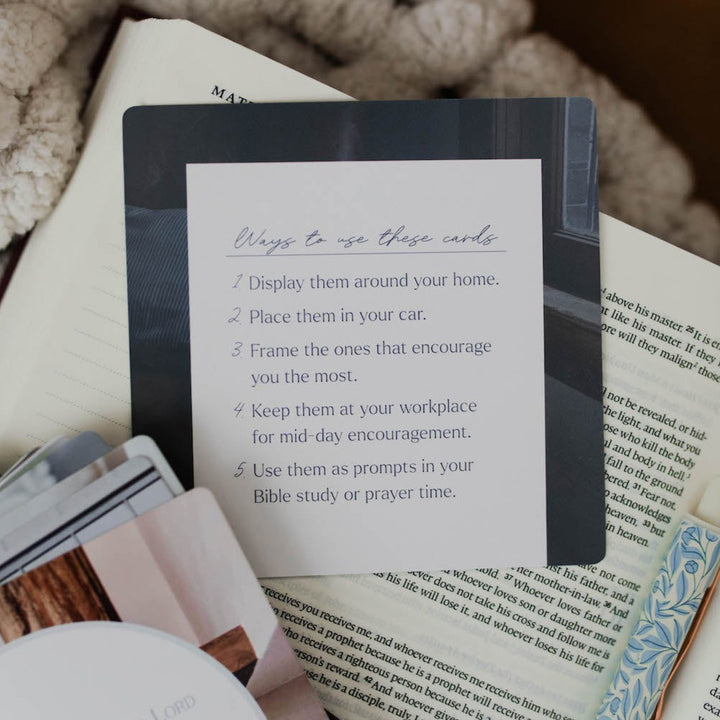 MAT
Ways to use these cards
1. Display them around your home.
2. Place them in your car.
3. Frame the ones that encourage
you the most.
4. Keep them at your workplace
for mid-day encouragement.
5. Use them as prompts in your
Bible study or prayer time.
above his master. 25 It is
like his master. If they
ore will they malign those
not be revealed, or hid-
the light, and what you
ose who kill the body
and body in hell.
fall to the ground
31 Fear not,
acknowledges
heaven. 33 but
in heaven.
not come
his father, and a
her mother-in-law. 36 And
37 Whoever loves father or
whoever loves son or daughter more
ever does not take his cross and follow me is
his life will lose it, and whoever loses his life for
receives you receives me, and whoever receives me receives him who
receives a prophet because he is a prophet will receive a
receives a righteous person because he is a
person's reward. 42 And whoever gives
he is a disciple, truly, I
LORD